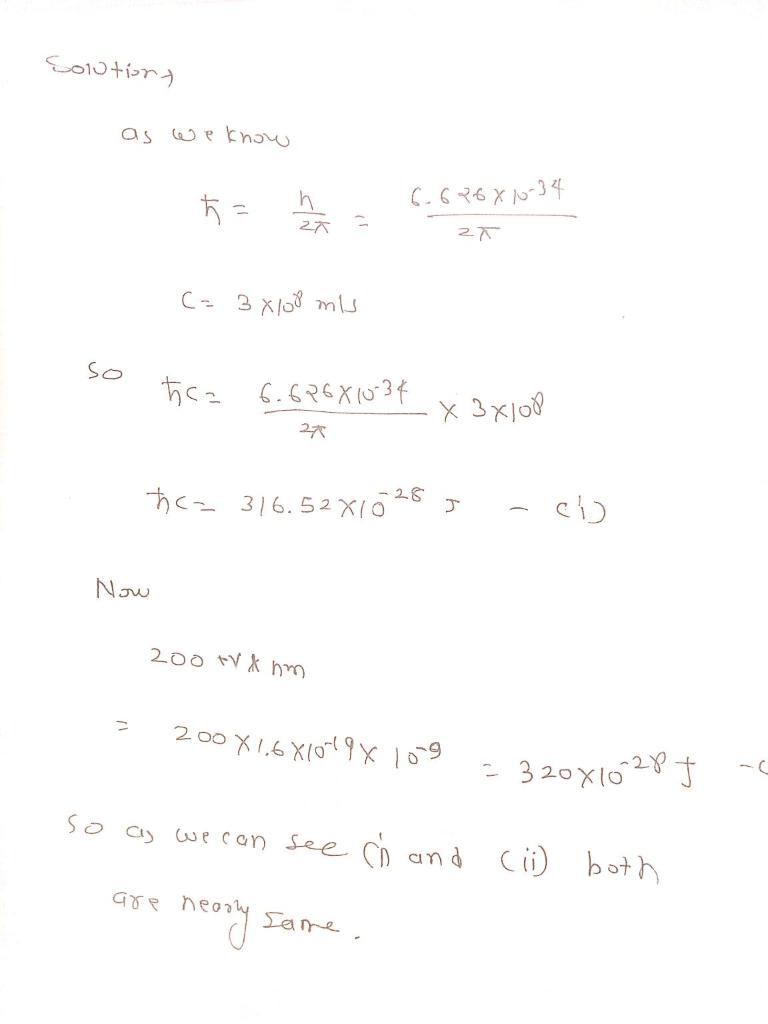 Solution
as we know
ħ = h/2π = 6.626 X 10-34/2π
C = 3 X 10⁸ m/s
So ħc = 6.626X10-34/2π X 3X10⁸
ħc = 316.52 X10-28 J - (i)
Now
200 eV X nm
= 200 X 1.6 X10-19 X 10-9 = 320X10-28 J -(
So as we can see (i) and (ii) both
are nearly same.